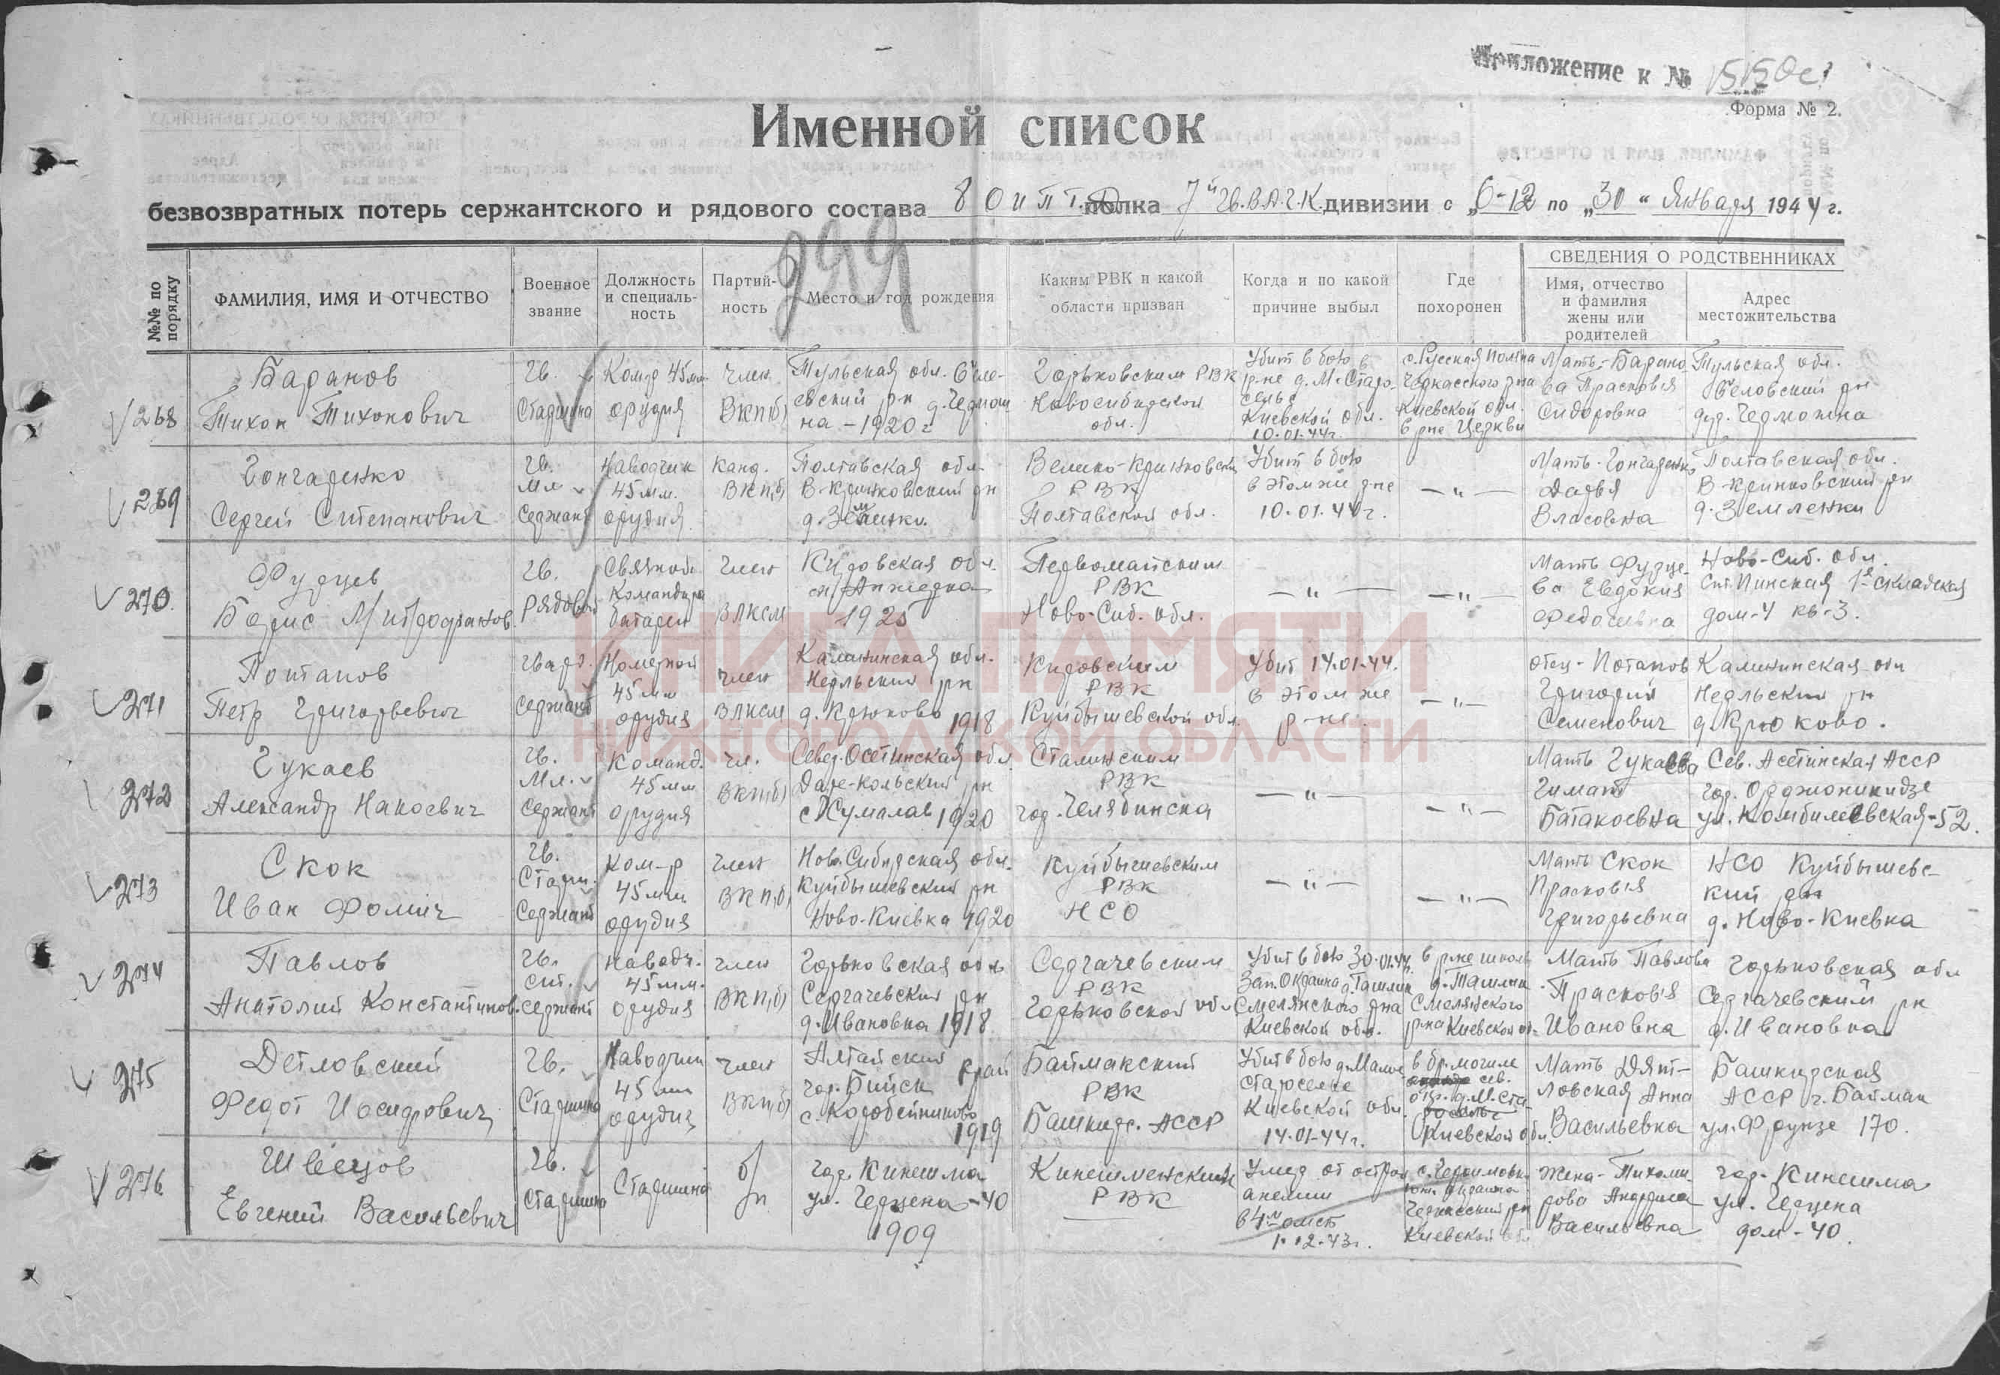 Приложение к № 1515 0с
Форма № 2.
Именной список
безвозвратных потерь сержантского и рядового состава 8 О И П Т. Д полка 7й Гв. В.А.Ч.К. дивизии с „6-12 по „30" Января 1944 г.
299
№№ по порядку
ФАМИЛИЯ, ИМЯ И ОТЧЕСТВО
Военное звание
Должность и специаль-ность
Партий-ность
Место и год рождения
Каким РВК и какой области призван
Когда и по какой причине выбыл
Где похоронен
СВЕДЕНИЯ О РОДСТВЕННИКАХ
Имя, отчество и фамилия жены или родителей
Адрес местожительства
268
Баранов
Тихон Тихонович
Гв. Старшина
Комр 45мм орудия
Член ВКП(б)
Тульская обл. Беле-
евский рн д. Чермош
на - 1920 г
Горьковским РВК
Новосибирской обл.
Убит в бою в
р-не д. М. Старо
селье
Киевской обл.
10.01.44г.
с. Русская Поляна
Черкасского рна
Киевской обл.
в рне Церкви
Мать - Барано
ва Прасковья
Сидоровна
Тульская обл.
Белевский рн
дер. Чермошна
269
Гончаренко
Сергей Степанович
Гв. Мл. Сержант
Наводчик 45мм. орудия
Канд. ВКП(б)
Полтавская обл.
В-Кринковский рн
Велико-Кринковским
РВК
Полтавской обл.
Убит в бою
в этом же рне
10.01.44г.
— " —
Мать - Гончаренко
Дарья
Власовна
Полтавская обл.
В-Кринковский рн
д. Землянки
270
Фурцев
Борис Митрофанов.
Гв. Рядовой
Связной Командира батареи
Член ВЛКСМ
Кировская обл.
ст. Анжерка
1925
Первомайским
РВК
Ново-Сиб. обл.
— " —
— " —
Мать Фурце
ва Евдокия
Федосеевна
Ново-Сиб. обл.
дом-4 кв-3.
271
Потапов
Петр Григорьевич
Гвард. Сержант
Номерной 45мм орудия
Член ВЛКСМ
Калининская обл.
Нерльский рн
д. Крюково 1918
Кировским
РВК
Куйбышевской обл.
Убит 14.01.44.
в этом же
р-не.
— " —
отец - Потапов
Григорий
Семенович
Калининская обл
Нерльский рн
д. Крюково.
272
Гукаев
Александр Накоевич
Гв. Мл. Сержант
Команд. 45мм орудия
Чл. ВКП(б)
Север. Осетинская обл.
Даре-Кольский рн
с. Хумалаг 1920
Сталинским
РВК
гор. Челябинска
— " —
— " —
Мать Гукаева
Гимат
Батакоевна
Сев. Асетинская АССР
гор. Орджоникидзе
ул. Комбилеевская-52.
273
Скок
Иван Фомич
Гв. Старш. Сержант
Ком-р 45мм орудия
Член ВКП(б)
Ново. Сибирская обл.
Куйбышевский рн
Ново-Киевка 1920
Куйбышевским
РВК
НСО
— " —
— " —
Мать Скок
Прасковья
Григорьевна
НСО Куйбышевс-
кий рн
д. Ново-Киевка
274
Павлов
Анатолий Константинов.
Гв. ст. Сержант
Наводч. 45мм. орудия
Член ВКП(б)
Горьковская обл
Сергачевский рн
д. Ивановка 1918
Сергачевским
РВК
Горьковской обл
Убит в бою 30.01.44.
Зап. Окраина д. Ташлык
Смелянского рна
Киевской обл.
в рне школы
д. Ташлык
Смелянского
рна Киевской об.
Мать Павлова
Прасковья
Ивановна
Горьковская обл
Сергачевский рн
д. Ивановка
275
Детловский
Федот Исидрович
Гв. Старшина
Наводчик 45мм орудия
Член ВКП(б)
Алтайский край
гор. Бийск
с. Коробейниково
1919
Баймакский
РВК
Башкир. АССР
Убит в бою д. Мало
староселье
Киевской обл.
14.01.44г.
в бр. могиле
сев.
окр. д. М. Ста
роселье
Киевской обл.
Мать Дят-
ловская Анна
Васильевна
Башкирская
АССР г. Баймак
ул. Фрунзе 170.
276
Швецов
Евгений Васильевич
Гв. Старшина
Старшина
б/п
гор. Кинешма
ул. Герцена-40
1909
Кинешменский
РВК
Умер от остро
анемии
1.12.43г.
Киевской обл
Жена - Тихоми
рова
Васильевна
гор. Кинешма
ул. Герцена
дом-40.
КНИГА ПАМЯТИ
НИЖЕГОРОДСКОЙ ОБЛАСТИ